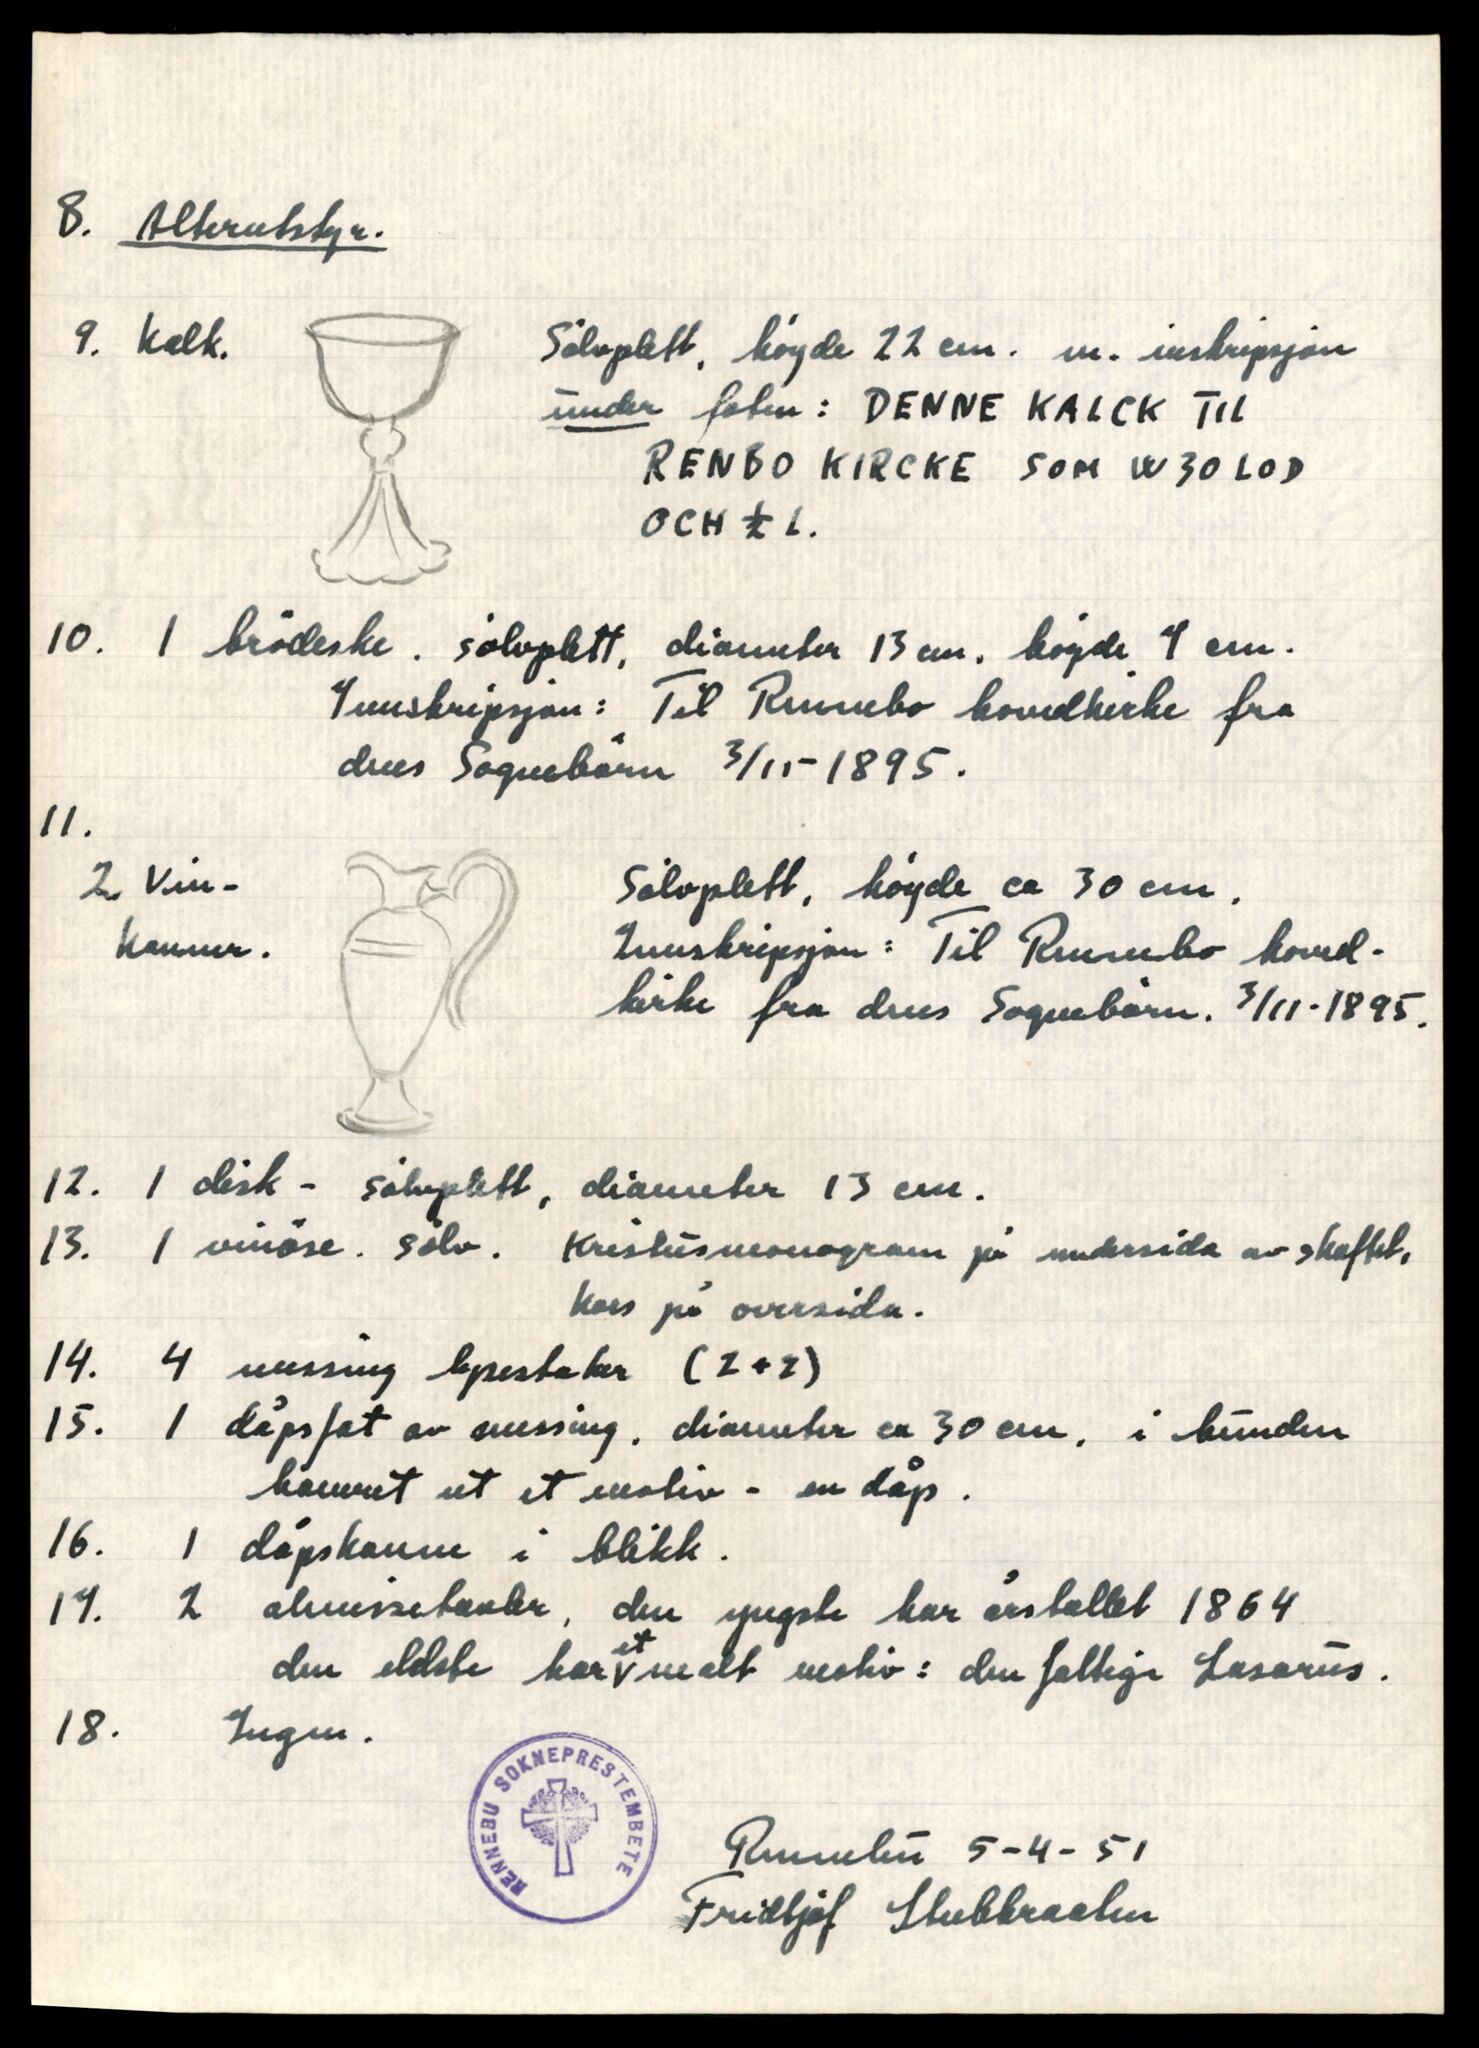 8. Alterutstyr.
9. Kalk.
Sölvplett, höyde 22 cm. m. inskripsjon
under foten: DENNE KALCK TIL
RENBO KIRCKE SOM W 30 LOD
OCH ½ L.
10. 1 brödeske. sölvplett, diameter 13 cm. höyde 7 cm.
Innskripsjon: Til Rennebo hovedkirke fra
dens Sognebörn 3/11-1895.
11.
2 Vin-
kanner.
Sölvplett, höyde ca 30 cm.
Innskripsjon: Til Rennebo hoved-
kirke fra dens Sognebörn. 3/11-1895.
12. 1 disk - sölvplett, diameter 13 cm.
13. 1 vinöse. sölv. Kristusmonogram på undersida av skaftet,
kors på oversida.
14. 4 messing lysestaker (2+2)
15. 1 dåpsfat av messing, diameter ca 30 cm, i bunden
hamret ut et motiv - en dåp.
16. 1 dåpskanne i blikk.
17. 2 almissetavler, den yngste har årstallet 1864
den eldste har et malt motiv: den fattige Lasarus.
18. Ingen.
RENNEBU SOKNEPRESTEMBETE
Rennebu 5-4-51
Fridtjof Stubbraaten